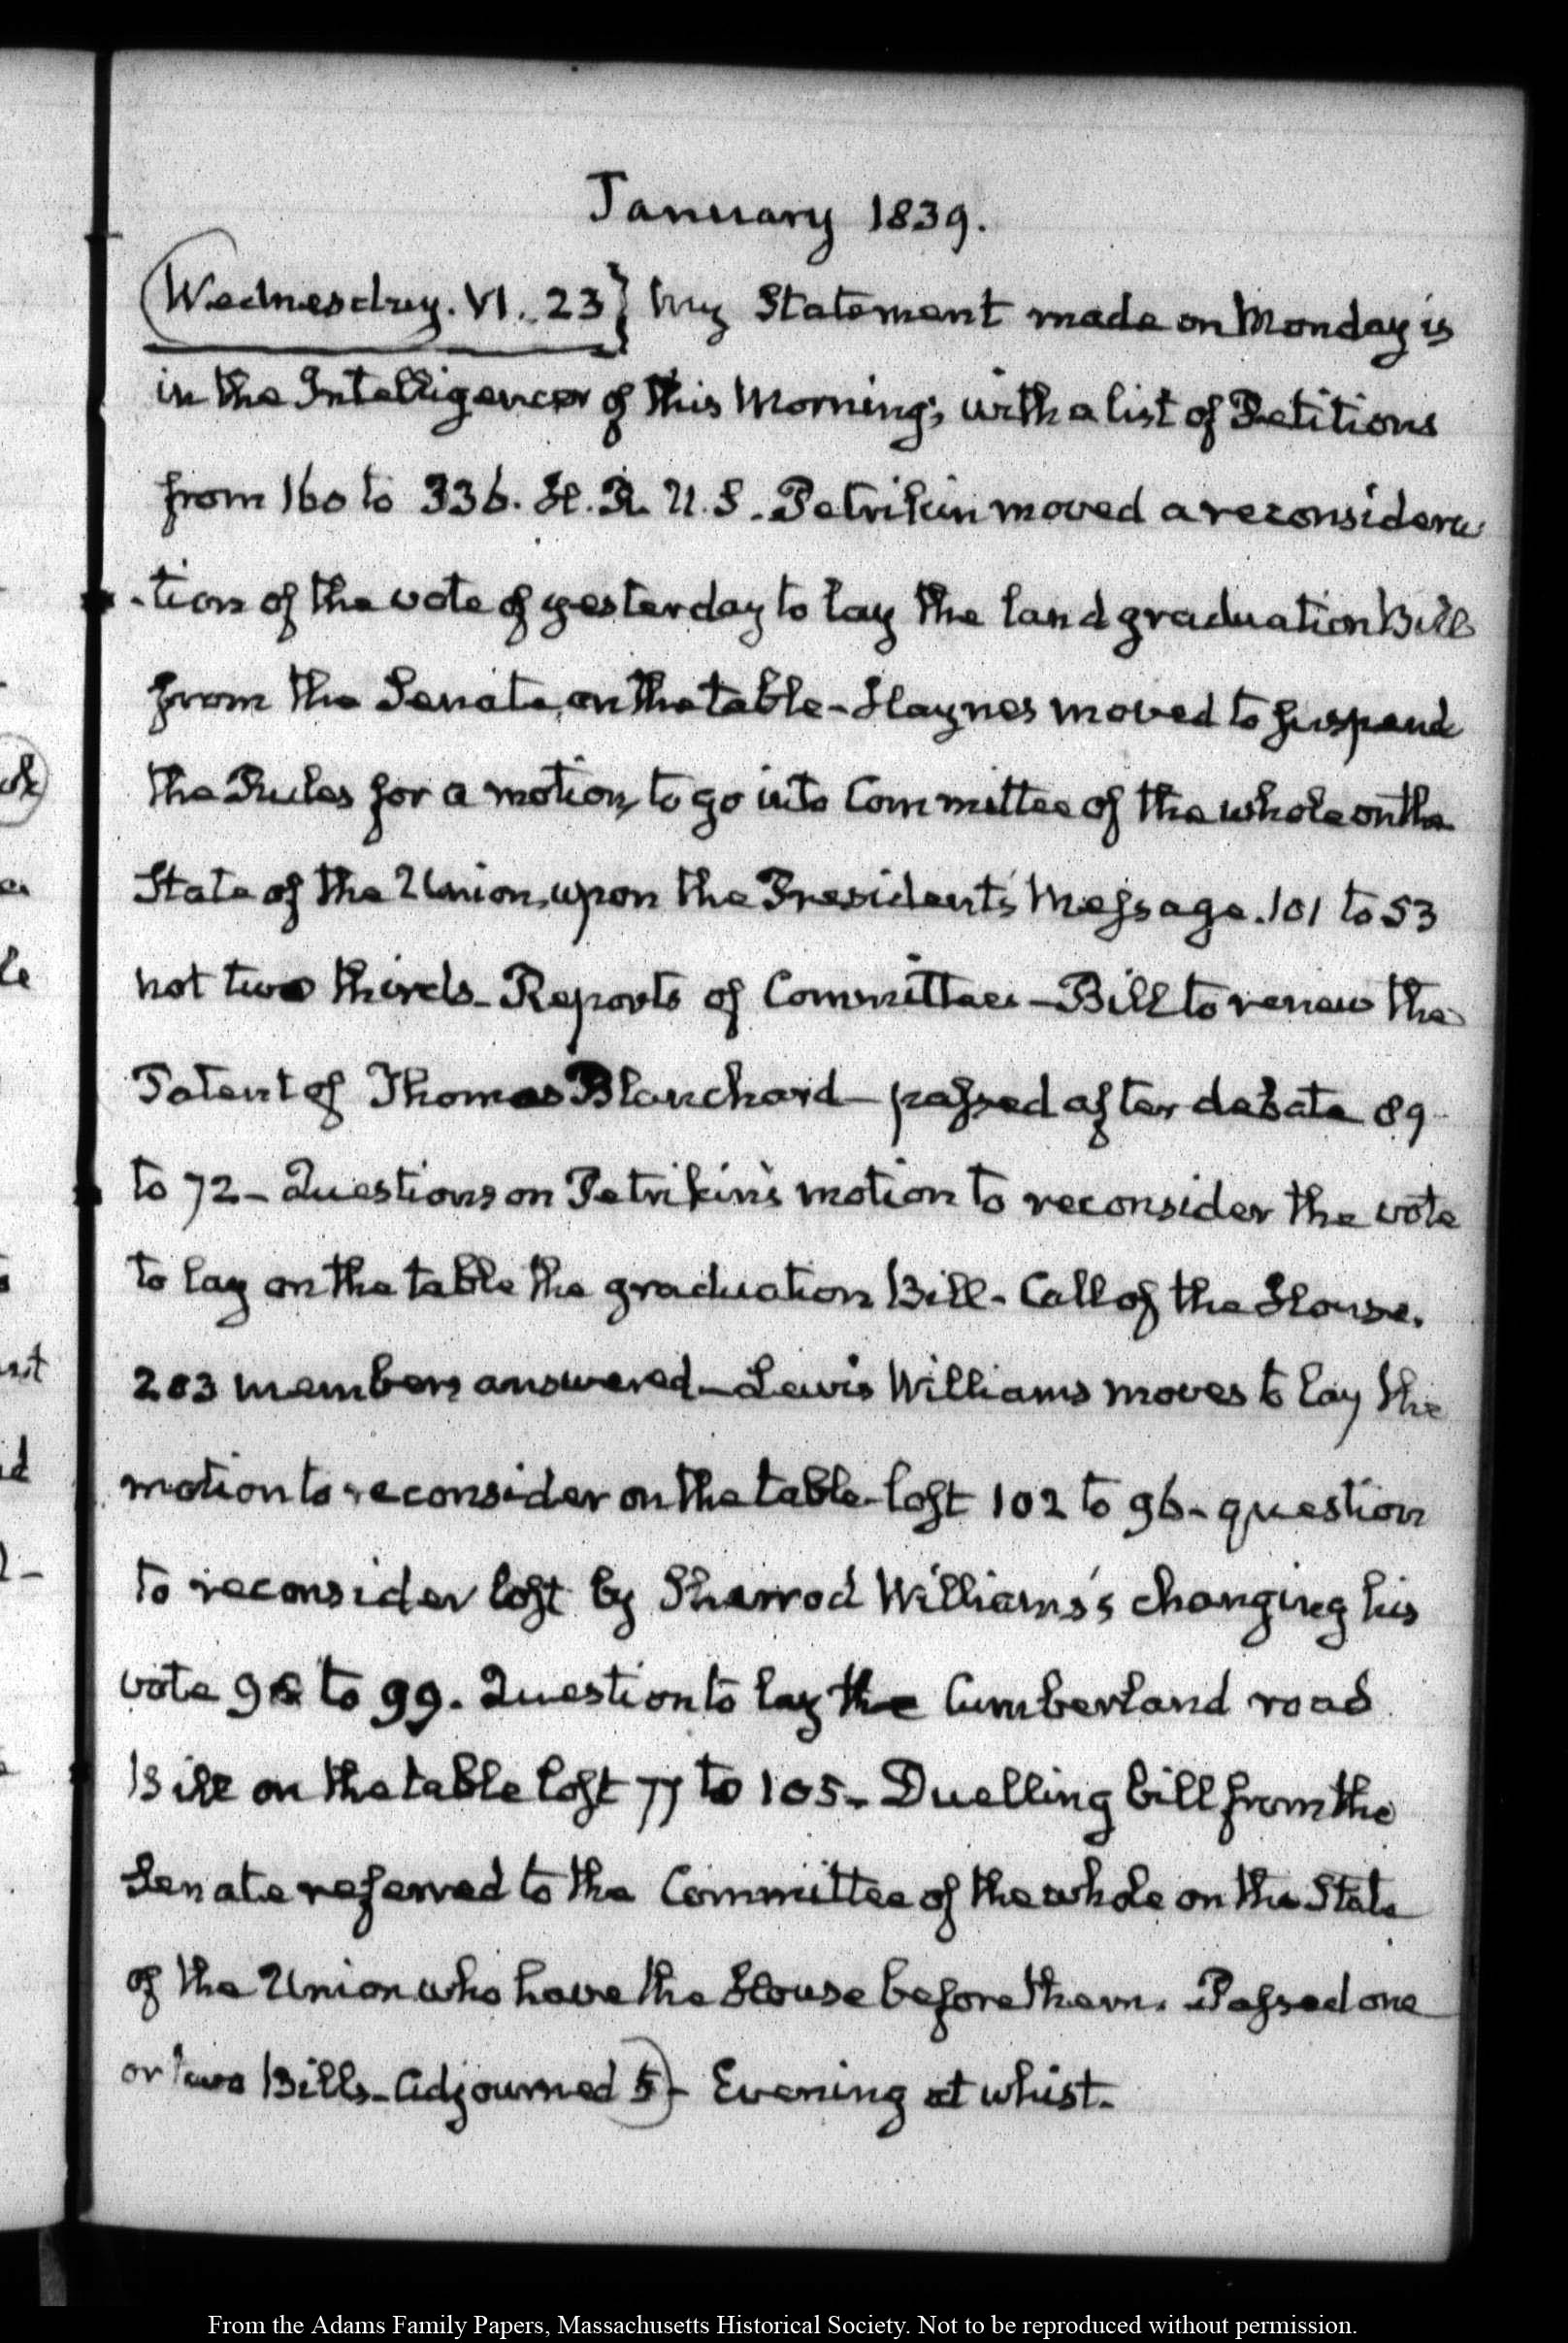 January 1839.
Wednesday. VI. 23} My Statement made on Monday is
in the Intelligencer of this Morning; with a list of Petitions
from 160 to 336. H. R. U. S. Petrikin moved a reconsidera
-tion of the vote of yesterday to lay the land graduation Bill
from the Senate, on the table - Haynes moved to suspend
the Rules for a motion, to go into Committee of the whole on the
State of the Union, upon the President's Message. 101 to 53
not two thirds - Reports of Committees - Bill to renew the
Patent of Thomas Blanchard - passed after debate 89
to 72 - Questions on Petrikin's motion to reconsider the vote
to lay on the table the graduation Bill - Call of the House.
203 members answered - Lewis Williams moves to lay the
motion to reconsider on the table - lost 102 to 96 - question
to reconsider lost by Sherrod Williams's changing his
vote 98 to 99. Question to lay the Cumberland road
Bill on the table lost 77 to 105 - Duelling bill from the
Senate referred to the Committee of the whole on the State
of the Union who have the House before them. Passed one
or two Bills - Adjourned 5) - Evening at whist -
From the Adams Family Papers, Massachusetts Historical Society. Not to be reproduced without permission.